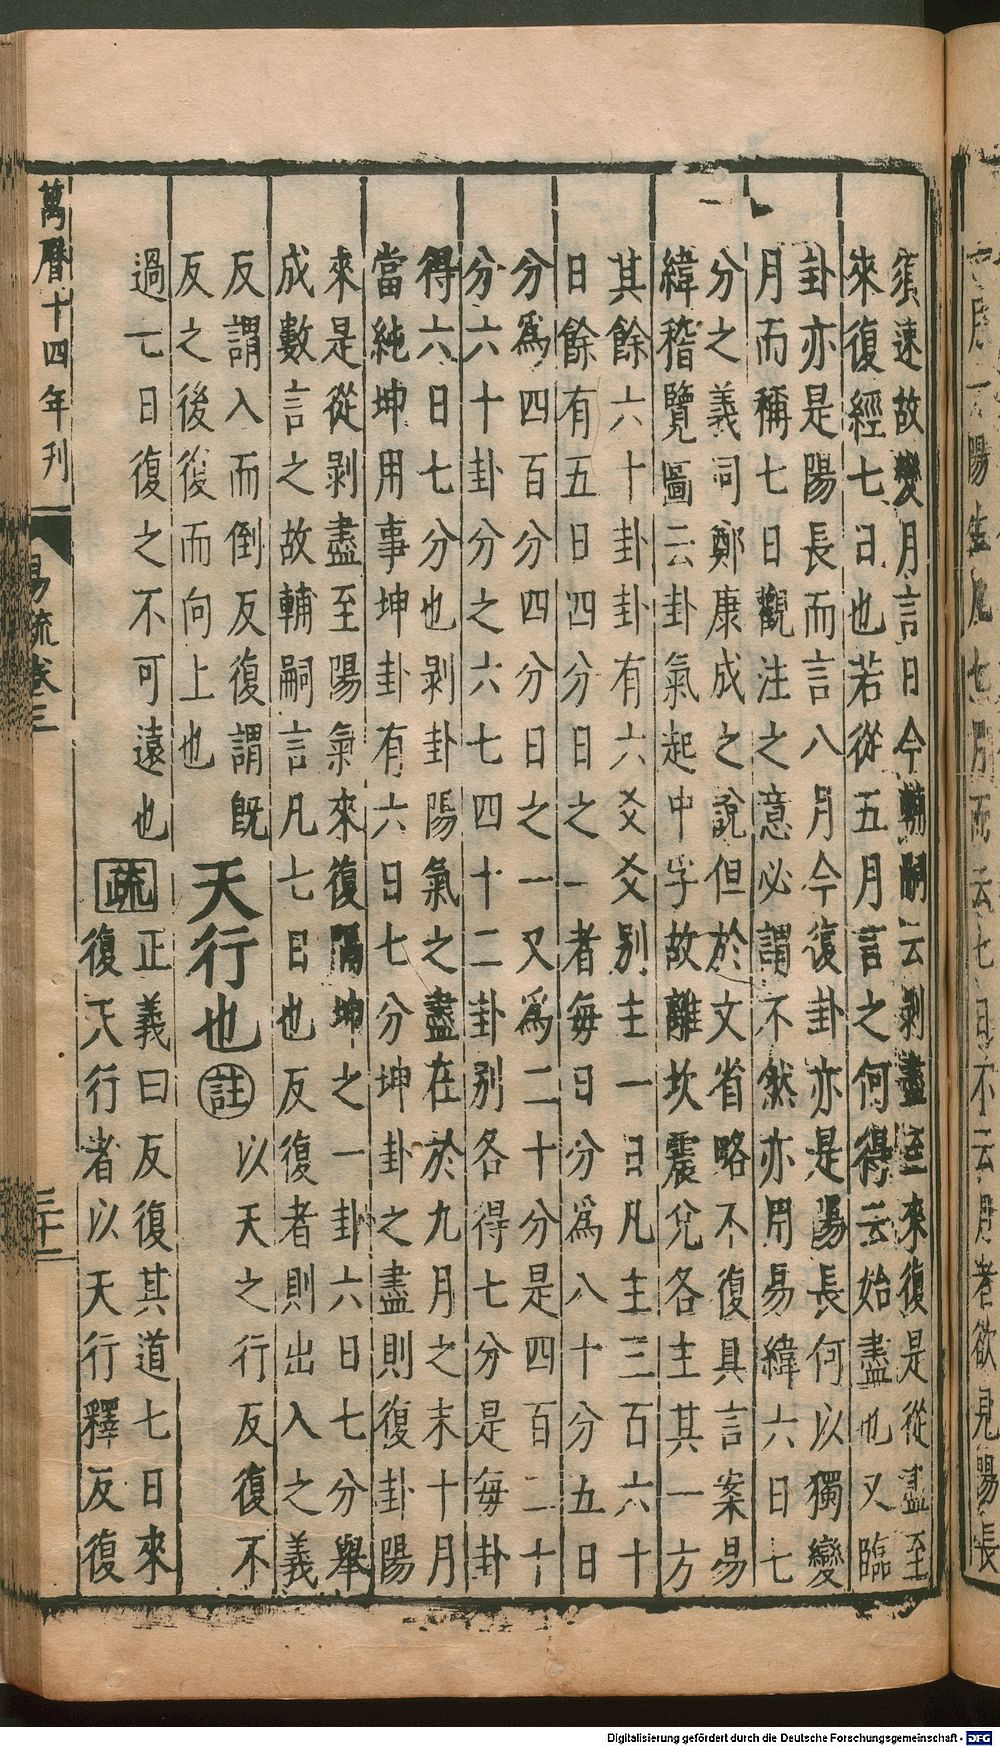 而云七日不云月者欲見陽長
須速故變月言日今輔嗣云剝盡至來復是從盡至
來復經七日也若從五月言之何得云始盡也又臨
卦亦是陽長而言八月今復卦亦是陽長何以獨變
月而稱七日觀注之意必謂不然亦用易緯六日七
分之義同鄭康成之說但於文省略不復具言案易
緯稽覽圖云卦氣起中孚故離坎震兌各主其一方
其餘六十卦卦有六爻爻別主一日凡主三百六十
日餘有五日四分日之一者每日分爲八十分五日
分爲四百分四分日之一又爲二十分是四百二十
分六十卦分之六七四十二卦別各得七分是每卦
得六日七分也剝卦陽氣之盡在於九月之末十月
當純坤用事坤卦有六日七分坤卦之盡則復卦陽
來是從剝盡至陽氣來復隔坤之一卦六日七分舉
成數言之故輔嗣言凡七日也反復者則出入之義
反謂入而倒反復謂旣
反之後復而向上也
天行也
註
以天之行反復不
過七日復之不可遠也
疏
正義曰反復其道七日來
復天行者以天行釋反復
萬曆十四年刋
易疏卷三
三十一
Digitalisierung gefördert durch die Deutsche Forschungsgemeinschaft - DFG